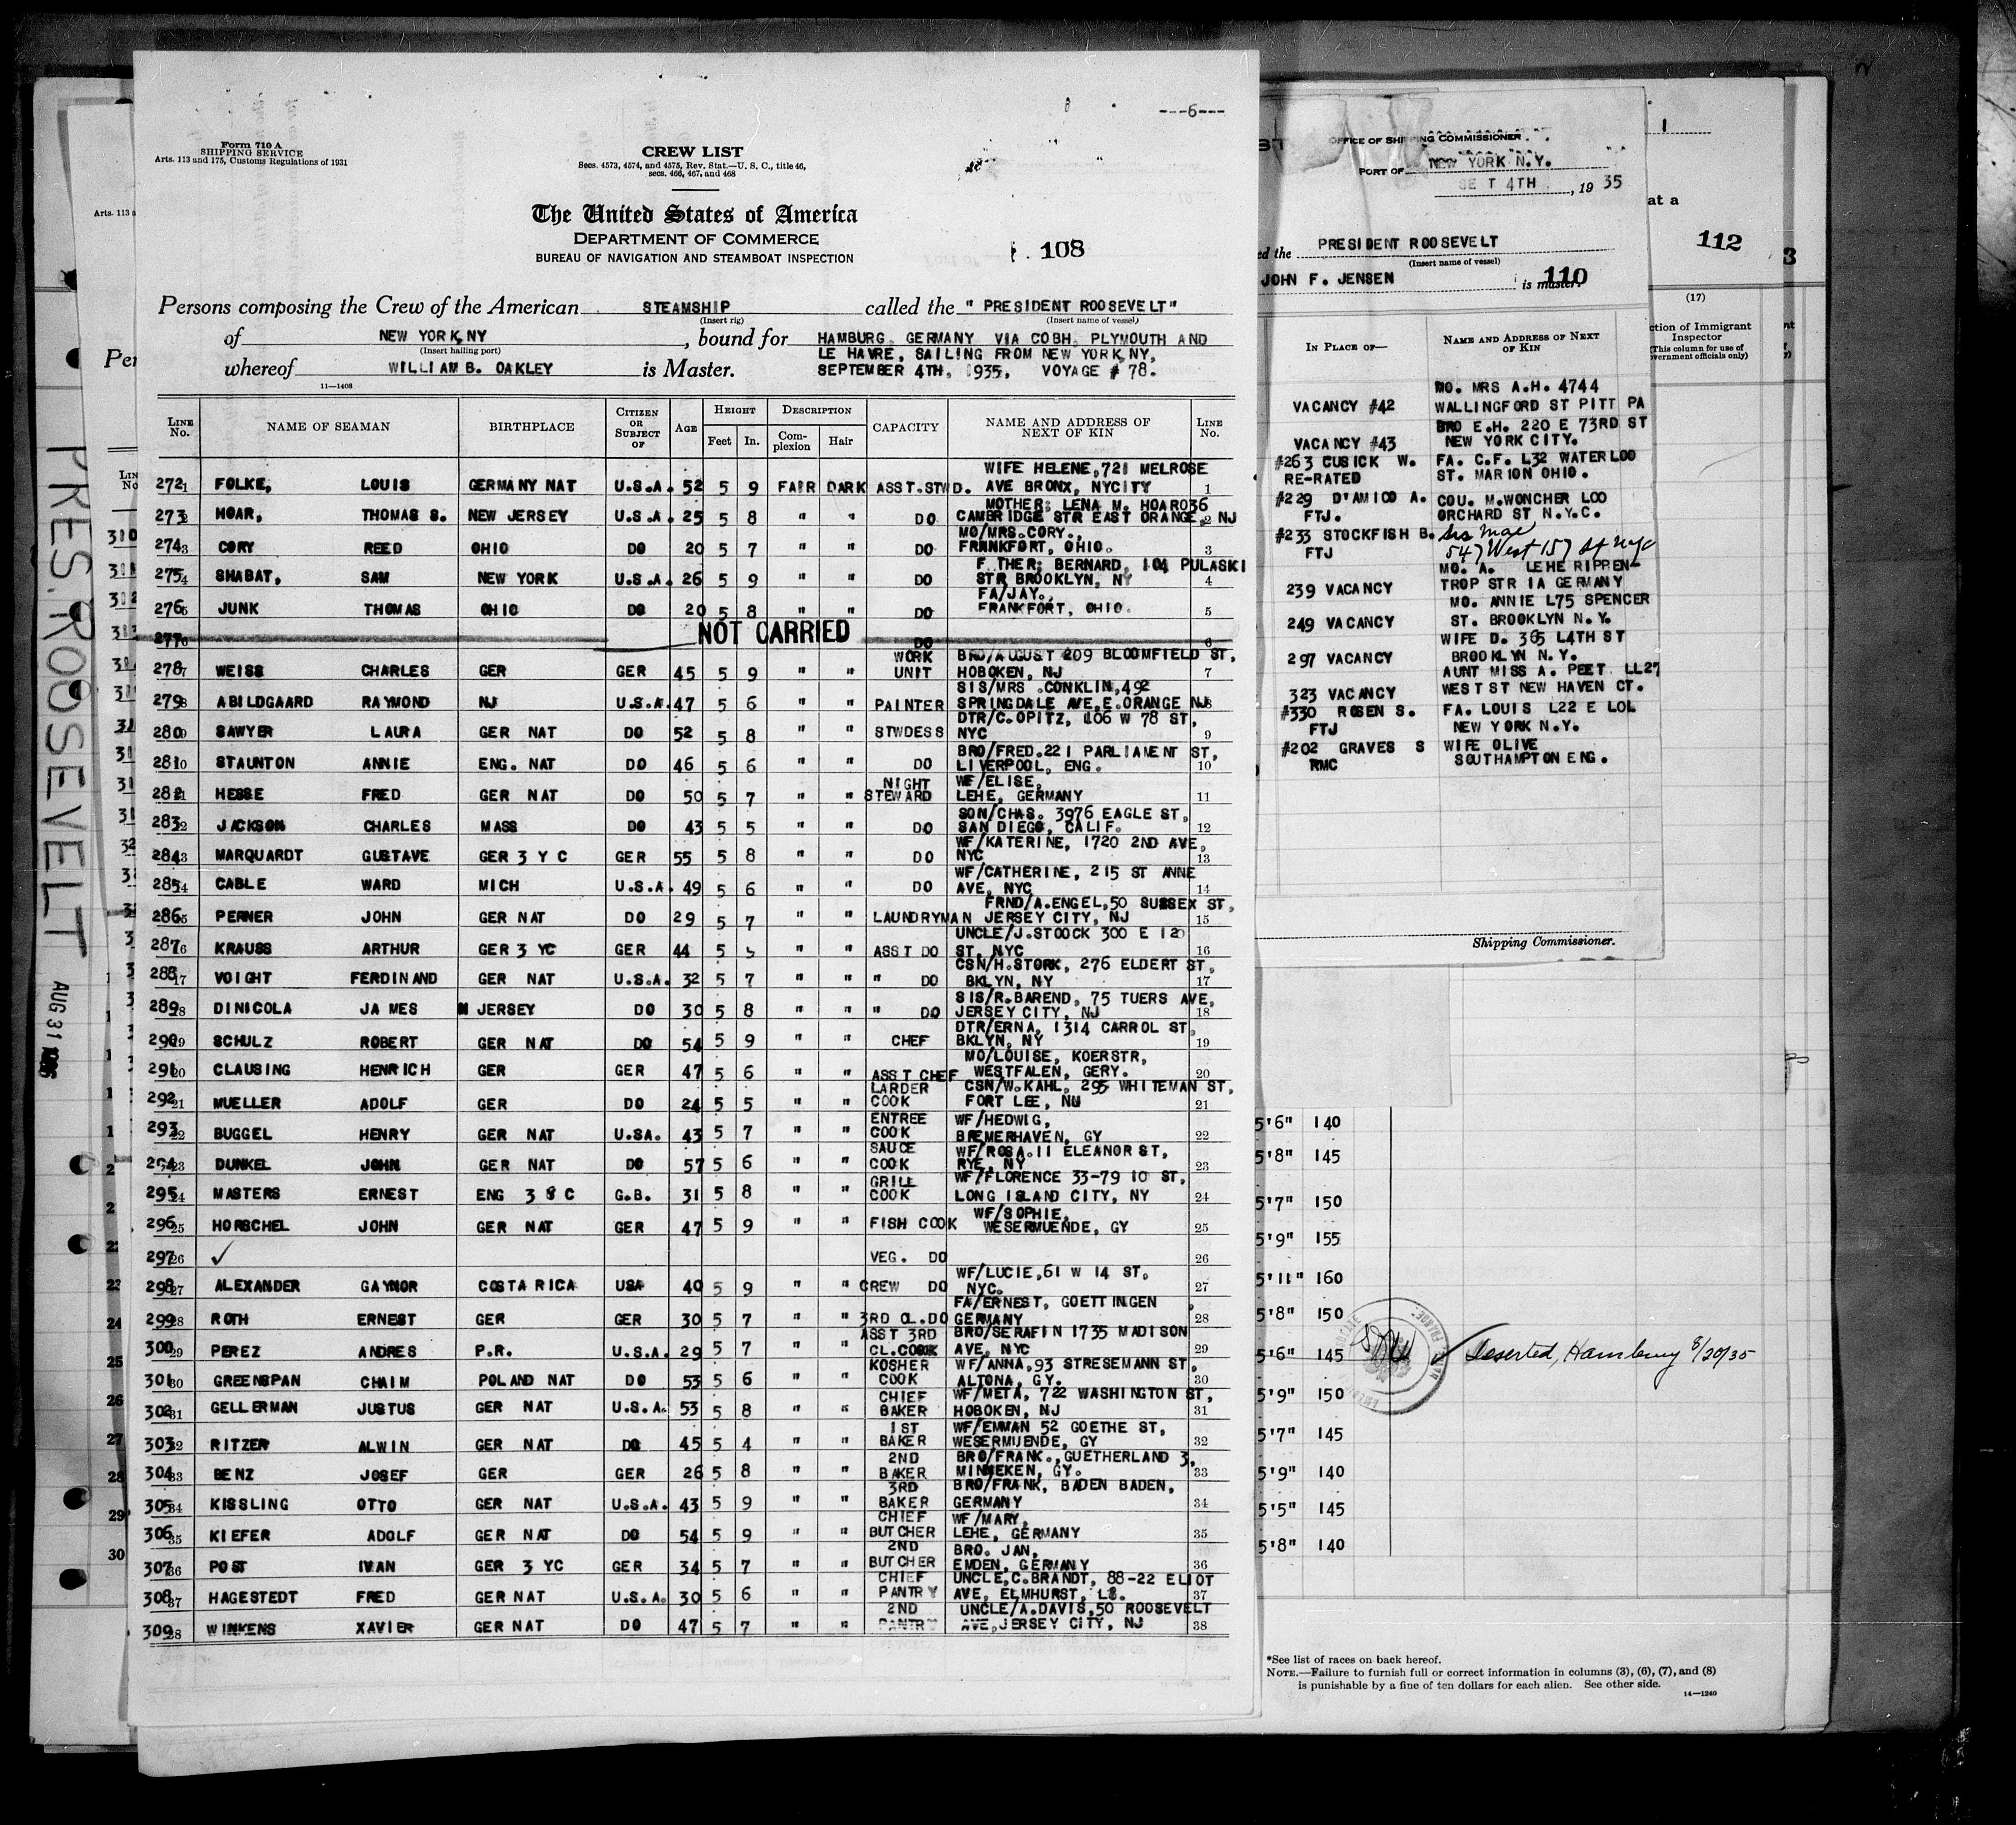 ---6---
Form 710 A
SHIPPING SERVICE
Arts. 113 and 175, Customs Regulations of 1931
CREW LIST
Secs. 4573, 4574, and 4575, Rev. Stat.—U. S. C., title 46,
secs. 466, 467, and 468
The United States of America
DEPARTMENT OF COMMERCE
BUREAU OF NAVIGATION AND STEAMBOAT INSPECTION
108
Persons composing the Crew of the American STEAMSHIP called the "PRESIDENT ROOSEVELT"
(Insert rig) (Insert name of vessel)
of NEW YORK,NY, bound for HAMBURG, GERMANY VIA COBH, PLYMOUTH AND
(Insert hailing port) LE HAVRE, SAILING FROM NEW YORK,NY,
whereof WILLIAM B. OAKLEY is Master. SEPTEMBER 4TH, 1935, VOYAGE # 78.
11—1408
LINE No. NAME OF SEAMAN BIRTHPLACE CITIZEN OR SUBJECT OF AGE HEIGHT Feet In. DESCRIPTION Complexion Hair CAPACITY NAME AND ADDRESS OF NEXT OF KIN LINE No.
272 1 FOLKE, LOUIS GERMANY NAT U.S.A. 52 5 9 FAIR DARK ASST.STWD. WIFE HELENE,721 MELROSE AVE BRONX, NYCITY 1
273 2 HOAR, THOMAS S. NEW JERSEY U.S.A. 25 5 8 " " DO MOTHER; LENA M. HOAR036 CAMBRIDGE STR EAST ORANGE, NJ 2
274 3 CORY REED OHIO DO 20 5 7 " " DO MO/MRS.CORY., FRANKFORT, OHIO. 3
275 4 SHABAT, SAM NEW YORK U.S.A. 26 5 9 " " DO F THER; BERNARD, 104 PULASKI STR BROOKLYN, NY 4
276 5 JUNK THOMAS OHIO DO 20 5 8 " " DO FA/JAY., FRANKFORT, OHIO. 5
277 6 NOT CARRIED DO 6
278 7 WEISS CHARLES GER GER 45 5 9 " " WORK UNIT BRO/AUGUST 209 BLOOMFIELD ST, HOBOKEN, NJ 7
279 8 ABILDGAARD RAYMOND NJ U.S.A. 47 5 6 " " PAINTER SIS/MRS .CONKLIN,492 SPRINGDALE AVE,E.ORANGE NJ 8
280 9 SAWYER LAURA GER NAT DO 52 5 8 " " STWDESS DTR/C.OPITZ, 106 W 78 ST, NYC 9
281 10 STAUNTON ANNIE ENG. NAT DO 46 5 6 " " DO BRO/FRED.221 PARLIAMENT ST, LIVERPOOL, ENG. 10
282 11 HESSE FRED GER NAT DO 50 5 7 " " NIGHT STEWARD WF/ELISE, LEHE, GERMANY 11
283 12 JACKSON CHARLES MASS DO 43 5 5 " " DO SON/CHAS. 3976 EAGLE ST, SAN DIEGO, CALIF. 12
284 13 MARQUARDT GUSTAVE GER 3 Y C GER 55 5 8 " " DO WF/KATERINE, 1720 2ND AVE, NYC 13
285 14 CABLE WARD MICH U.S.A. 49 5 6 " " DO WF/CATHERINE, 215 ST ANNE AVE, NYC 14
286 15 PERNER JOHN GER NAT DO 29 5 7 " " LAUNDRYMAN FRND/A.ENGEL,50 SUSSEX ST, JERSEY CITY, NJ 15
287 16 KRAUSS ARTHUR GER 3 YC GER 44 5 " " ASST DO UNCLE/J.STOOCK 300 E 120 ST, NYC 16
288 17 VOIGHT FERDINAND GER NAT U.S.A. 32 5 7 " " " DO CSN/H.STORK, 276 ELDERT ST, BKLYN, NY 17
289 18 DINICOLA JAMES N JERSEY DO 30 5 8 " " " DO SIS/R.BAREND, 75 TUERS AVE, JERSEY CITY, NJ 18
290 19 SCHULZ ROBERT GER NAT DO 54 5 9 " " CHEF DTR/ERNA, 1314 CARROL ST, BKLYN, NY 19
291 20 CLAUSING HENRICH GER GER 47 5 6 " " ASST CHEF MO/LOUISE, KOERSTR, WESTFALEN, GERY. 20
292 21 MUELLER ADOLF GER DO 24 5 5 " " LARDER COOK CSN/W.KAHL. 295 WHITEMAN ST, FORT LEE, NJ 21
293 22 BUGGEL HENRY GER NAT U.SA. 43 5 7 " " ENTREE COOK WF/HEDWIG, BREMERHAVEN, GY 22
294 23 DUNKEL JOHN GER NAT DO 57 5 6 " " SAUCE COOK WF/ROSA.11 ELEANOR ST, RYE, NY 23
295 24 MASTERS ERNEST ENG 3 S C G.B. 31 5 8 " " GRILL COOK WF/FLORENCE 33-79 10 ST, LONG ISLAND CITY, NY 24
296 25 HORSCHEL JOHN GER NAT GER 47 5 9 " " FISH COOK WF/SOPHIE, WESERMUENDE, GY 25
297 26 ✓ VEG. DO 26
298 27 ALEXANDER GAYNOR COSTA RICA USA 40 5 9 " " CREW DO WF/LUCIE,61 W 14 ST, NYC. 27
299 28 ROTH ERNEST GER GER 30 5 7 " " 3RD CL.DO FA/ERNEST, GOETTINGEN , GERMANY 28
300 29 PEREZ ANDRES P.R. U.S.A. 29 5 7 " " ASST 3RD CL.COOK BRO/SERAFIN 1735 MADISON AVE, NYC 29
301 30 GREENSPAN CHAIM POLAND NAT DO 53 5 6 " " KOSHER COOK WF/ANNA,93 STRESEMANN ST, ALTONA, GY. 30
302 31 GELLERMAN JUSTUS GER NAT U.S.A. 53 5 8 " " CHIEF BAKER WF/META, 722 WASHINGTON ST, HOBOKEN, NJ 31
303 32 RITZER ALWIN GER NAT DO 45 5 4 " " 1ST BAKER WF/EMMAN 52 GOETHE ST, WESERMUENDE, GY 32
304 33 BENZ JOSEF GER GER 26 5 8 " " 2ND BAKER BRO/FRANK.,GUETHERLAND 3, MINNEKEN, GY. 33
305 34 KISSLING OTTO GER NAT U.S.A. 43 5 9 " " 3RD BAKER BRO/FRANK, BADEN BADEN, GERMANY 34
306 35 KIEFER ADOLF GER NAT DO 54 5 9 " " CHIEF BUTCHER WF/MARY, LEHE, GERMANY 35
307 36 POST IVAN GER 3 YC GER 34 5 7 " " 2ND BUTCHER BRO. JAN, EMDEN, GERMANY 36
308 37 HAGESTEDT FRED GER NAT U.S.A. 30 5 6 " " CHIEF PANTRY UNCLE,C.BRANDT, 88-22 ELIOT AVE, ELMHURST, LI. 37
309 38 WINKENS XAVIER GER NAT DO 47 5 7 " " 2ND PANTRY UNCLE/A.DAVIS,50 ROOSEVELT AVE,JERSEY CITY, NJ 38
PRES. ROOSEVELT AUG 31
Arts. 113 a
Per
OFFICE OF SHIPPING COMMISSIONER
PORT OF NEW YORK N.Y.
SE T 4TH, 19 35
ed the PRESIDENT ROOSEVELT
(Insert name of vessel)
JOHN F. JENSEN is master.
110
IN PLACE OF— NAME AND ADDRESS OF NEXT OF KIN
VACANCY #42 MO. MRS A.H. 4744 WALLINGFORD ST PITT PA
VACANCY #43 BRO E.H. 220 E 73RD ST NEW YORK CITY.
#263 CUSICK W. RE-RATED FA. C.F. L32 WATERLOO ST. MARION OHIO.
#229 D'AMICO A. FTJ. COU. M.WONCHER LOO ORCHARD ST N.Y.C.
#233 STOCKFISH B. FTJ sis Mae 547 West 157 St NYC
239 VACANCY MO. A. LEHE RIPPEN- TROP STR IA GERMANY
249 VACANCY MO. ANNIE L75 SPENCER ST. BROOKLYN N.Y.
297 VACANCY WIFE D. 365 L4TH ST BROOKLYN N.Y.
323 VACANCY AUNT MISS A. PEET LL27 WEST ST NEW HAVEN CT.
#330 ROSEN S. FTJ FA. LOUIS L22 E LOL NEW YORK N.Y.
#202 GRAVES S RMC WIFE OLIVE SOUTHAMPTON ENG.
Shipping Commissioner.
at a
112
3
(17)
ction of Immigrant
Inspector
(This column for use of
vernment officials only)
5'6" 140
5'8" 145
5'7" 150
5'9" 155
5'11" 160
5'8" 150
5'6" 145 ✓ Deserted, Hamburg 8/20/35
5'9" 150
5'7" 145
5'9" 140
5'5" 145
5'8" 140
*See list of races on back hereof.
NOTE.—Failure to furnish full or correct information in columns (3), (6), (7), and (8)
is punishable by a fine of ten dollars for each alien. See other side.
14—1240